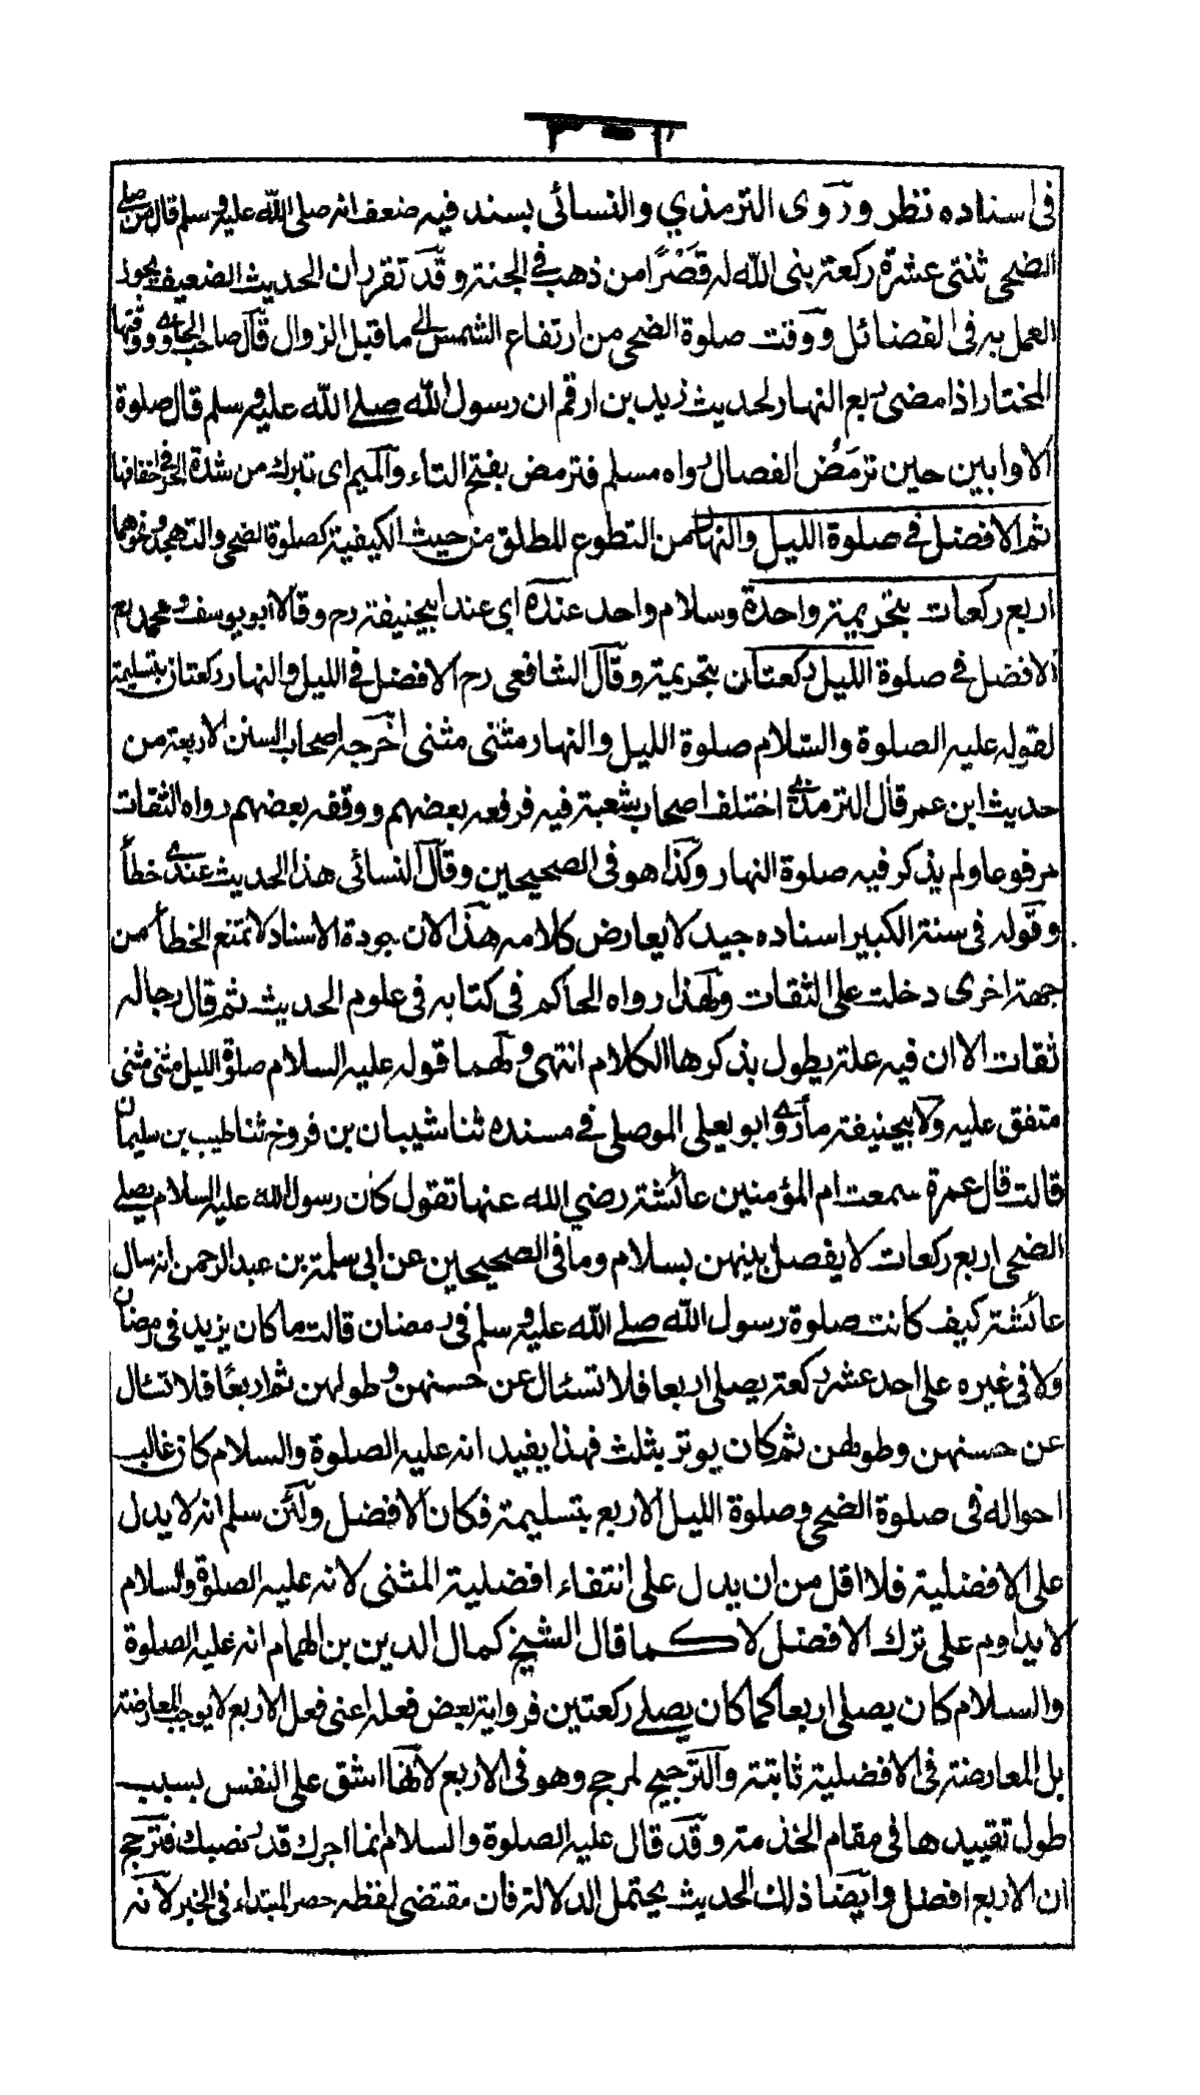 فى اسناده نظر وروى الترمذي والنسائى بسند فيه ضعف انه صلى الله عليه وسلم قال من صلى
الضحى ثنتى عشرة ركعة بنى الله له قَصْرًا من ذهب في الجنة وقد تقرر ان الحديث الضعيف يجوز
العمل به فى الفضائل ووقت صلوة الضحى من ارتفاع الشمس الى ما قبل الزوال قال صاحب الحاوى ووقتها
المختار اذا مضى ربع النهار لحديث زيد بن ارقم ان رسول الله صلى الله عليه وسلم قال صلوة
الاوابين حين ترمَضُ الفصال رواه مسلم فترمض بفتح التاء والميم اى تبرك من شدة الحر في اخفافها
ثم الافضل في صلوة الليل والنهار من التطوع المطلق من حيث الكيفية كصلوة الضحى والتهجد ونحوهما
اربع ركعات بتحريمة واحدة وسلام واحد عنده اى عند ابيحنيفة رح وقالا ابو يوسف ومحمد رح
الافضل في صلوة الليل ركعتان بتحريمة وقال الشافعى رح الافضل في الليل والنهار ركعتان بتسليمة
لقوله عليه الصلوة والسلام صلوة الليل والنهار مثنى مثنى اخرجه اصحاب السنن الاربعة من
حديث ابن عمر قال الترمذى اختلف اصحاب شعبة فيه فرفعه بعضهم ووقفه بعضهم رواه الثقات
مرفوعا ولم يذكر فيه صلوة النهار وكذا هو فى الصحيحين وقال النسائى هذا الحديث عندى خطأ
وقوله فى سننه الكبير اسناده جيد لا يعارض كلامه هذا لان جودة الاسناد لا تمنع الخطأ من
جهة اخرى دخلت على الثقات ولهذا رواه الحاكم فى كتابه فى علوم الحديث ثم قال رجاله
ثقات الا ان فيه علة يطول بذكرها الكلام انتهى ولهما قوله عليه السلام صلوة الليل مثنى مثنى
متفق عليه ولابيحنيفة ما روى ابو يعلى الموصلى في مسنده ثنا شيبان بن فروخ ثنا طيب بن سليمان
قالت قال عمرة سمعت ام المؤمنين عائشة رضي الله عنها تقول كان رسول الله عليه السلام يصلى
الضحى اربع ركعات لا يفصل بينهن بسلام وما فى الصحيحين عن ابى سلمة بن عبد الرحمن انه سال
عائشة كيف كانت صلوة رسول الله صلى الله عليه وسلم فى رمضان قالت ما كان يزيد فى رمضان
ولا فى غيره على احد عشر ركعة يصلى اربعا فلا تسئال عن حسنهن وطولهن ثم اربعًا فلا تسئال
عن حسنهن وطولهن ثم كان يوتر بثلث فهذا يفيد انه عليه الصلوة والسلام كان غالب
احواله فى صلوة الضحى وصلوة الليل الاربع بتسليمة فكان الافضل ولئن سلم انه لا يدل
على الافضلية فلا اقل من ان يدل على انتفاء افضلية المثنى لانه عليه الصلوة والسلام
لا يداوم على ترك الافضل لا كما قال الشيخ كمال الدين بن الهمام انه عليه الصلوة
والسلام كان يصلى اربعا كما كان يصلى ركعتين فرواية بعض فعله اعنى فعل الاربع لا يوجب المعارضة
بل المعارضة فى الافضلية ثابتة والترجيح لمرجح وهو فى الاربع لانها اشق على النفس بسبب
طول تقييدها فى مقام الخدمة وقد قال عليه الصلوة والسلام انما اجرك قدر نصبك فترجح
ان الاربع افضل وايضا ذلك الحديث يحتمل الدلالة فان مقتضى لفظه حصر المبتداء فى الخبر لانه